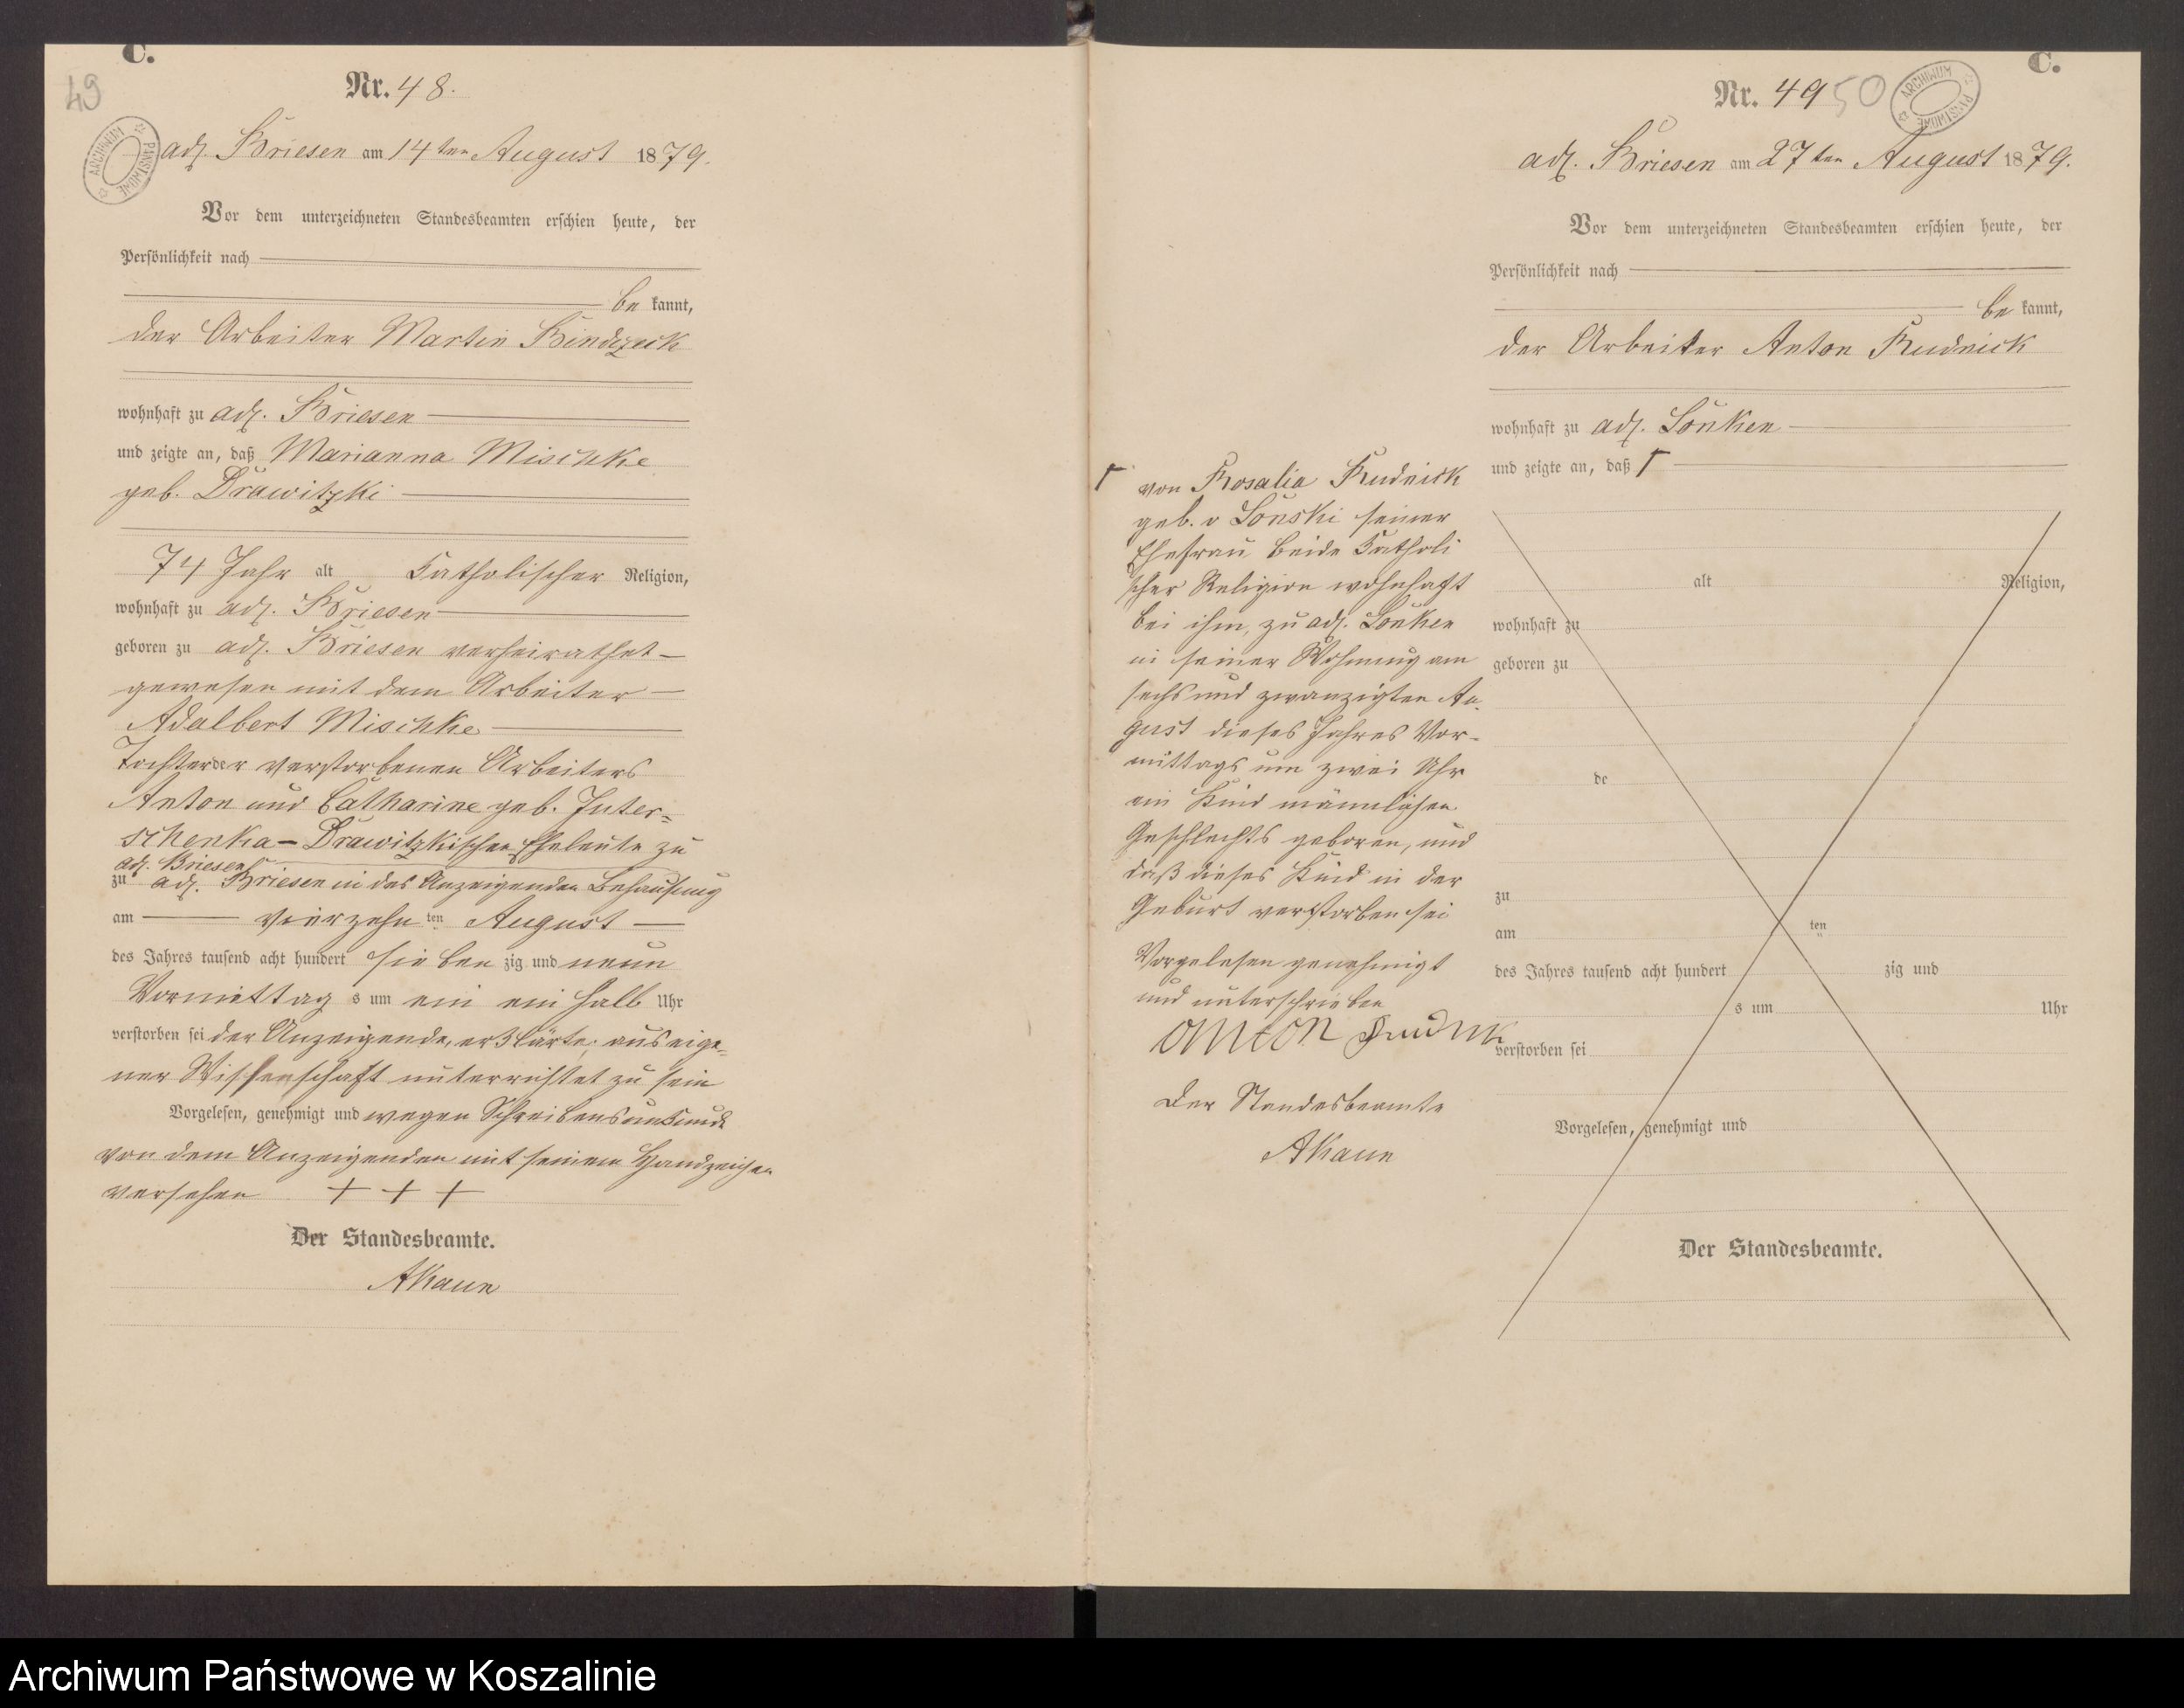 C.
49
Nr. 48.
ARCHIWUM PAŃSTWOWE
adl. Briesen am 14ten August 1879.
Vor dem unterzeichneten Standesbeamten erschien heute, der
Persönlichkeit nach
be kannt,
der Arbeiter Martin
wohnhaft zu adl. Briesen
und zeigte an, daß Marianna Mischke
geb. Drawitzki
74 Jahr alt Katholischer Religion,
wohnhaft zu adl. Briesen
geboren zu adl. Briesen verheirathet
gewesen mit dem Arbeiter
Adalbert Mischke
Tochter der verstorbenen Arbeiters
Anton und Catharine geb. Juter=
schenka - Drawitzkischen Eheleute zu
adl. Briesen
zu adl. Briesen in des Anzeigenden Behausung
am vierzehn ten August
des Jahres tausend acht hundert sieben zig und neun
Vormittag s um ein ein halb Uhr
verstorben sei der Anzeigende, erklärte; aus eige=
ner Wissenschaft unterrichtet zu sein
Vorgelesen, genehmigt und wegen Schreibensunkunde
von dem Anzeigenden mit seinem Handzeichen
versehen + + +
Der Standesbeamte.
AKaun
C.
Nr. 49 50
ARCHIWUM PAŃSTWOWE
adl. Briesen am 27ten August 1879.
Vor dem unterzeichneten Standesbeamten erschien heute, der
Persönlichkeit nach
be kannt,
der Arbeiter Anton Rudnick
wohnhaft zu adl. Lonken
und zeigte an, daß
von Rosalia Rudnick
geb. v Lonski seiner
Ehefrau beide Katholi
scher Religion wohnhaft
bei ihm, zu adl. Lonken
in seiner Wohnung am
sechs und zwanzigten Au-
gust dieses Jahres Vor-
mittags um zwei Uhr
ein Kind männlichen
Geschlechts geboren, und
daß dieses Kind in der
Geburt verstorben sei
Vorgelesen genehmigt
und unterschrieben
Anton Rudnik
Der Standesbeamte
AKaun
alt Religion,
wohnhaft zu
geboren zu
de
zu
am ten
des Jahres tausend acht hundert zig und
s um Uhr
verstorben sei
Vorgelesen, genehmigt und
Der Standesbeamte.
Archiwum Państwowe w Koszalinie